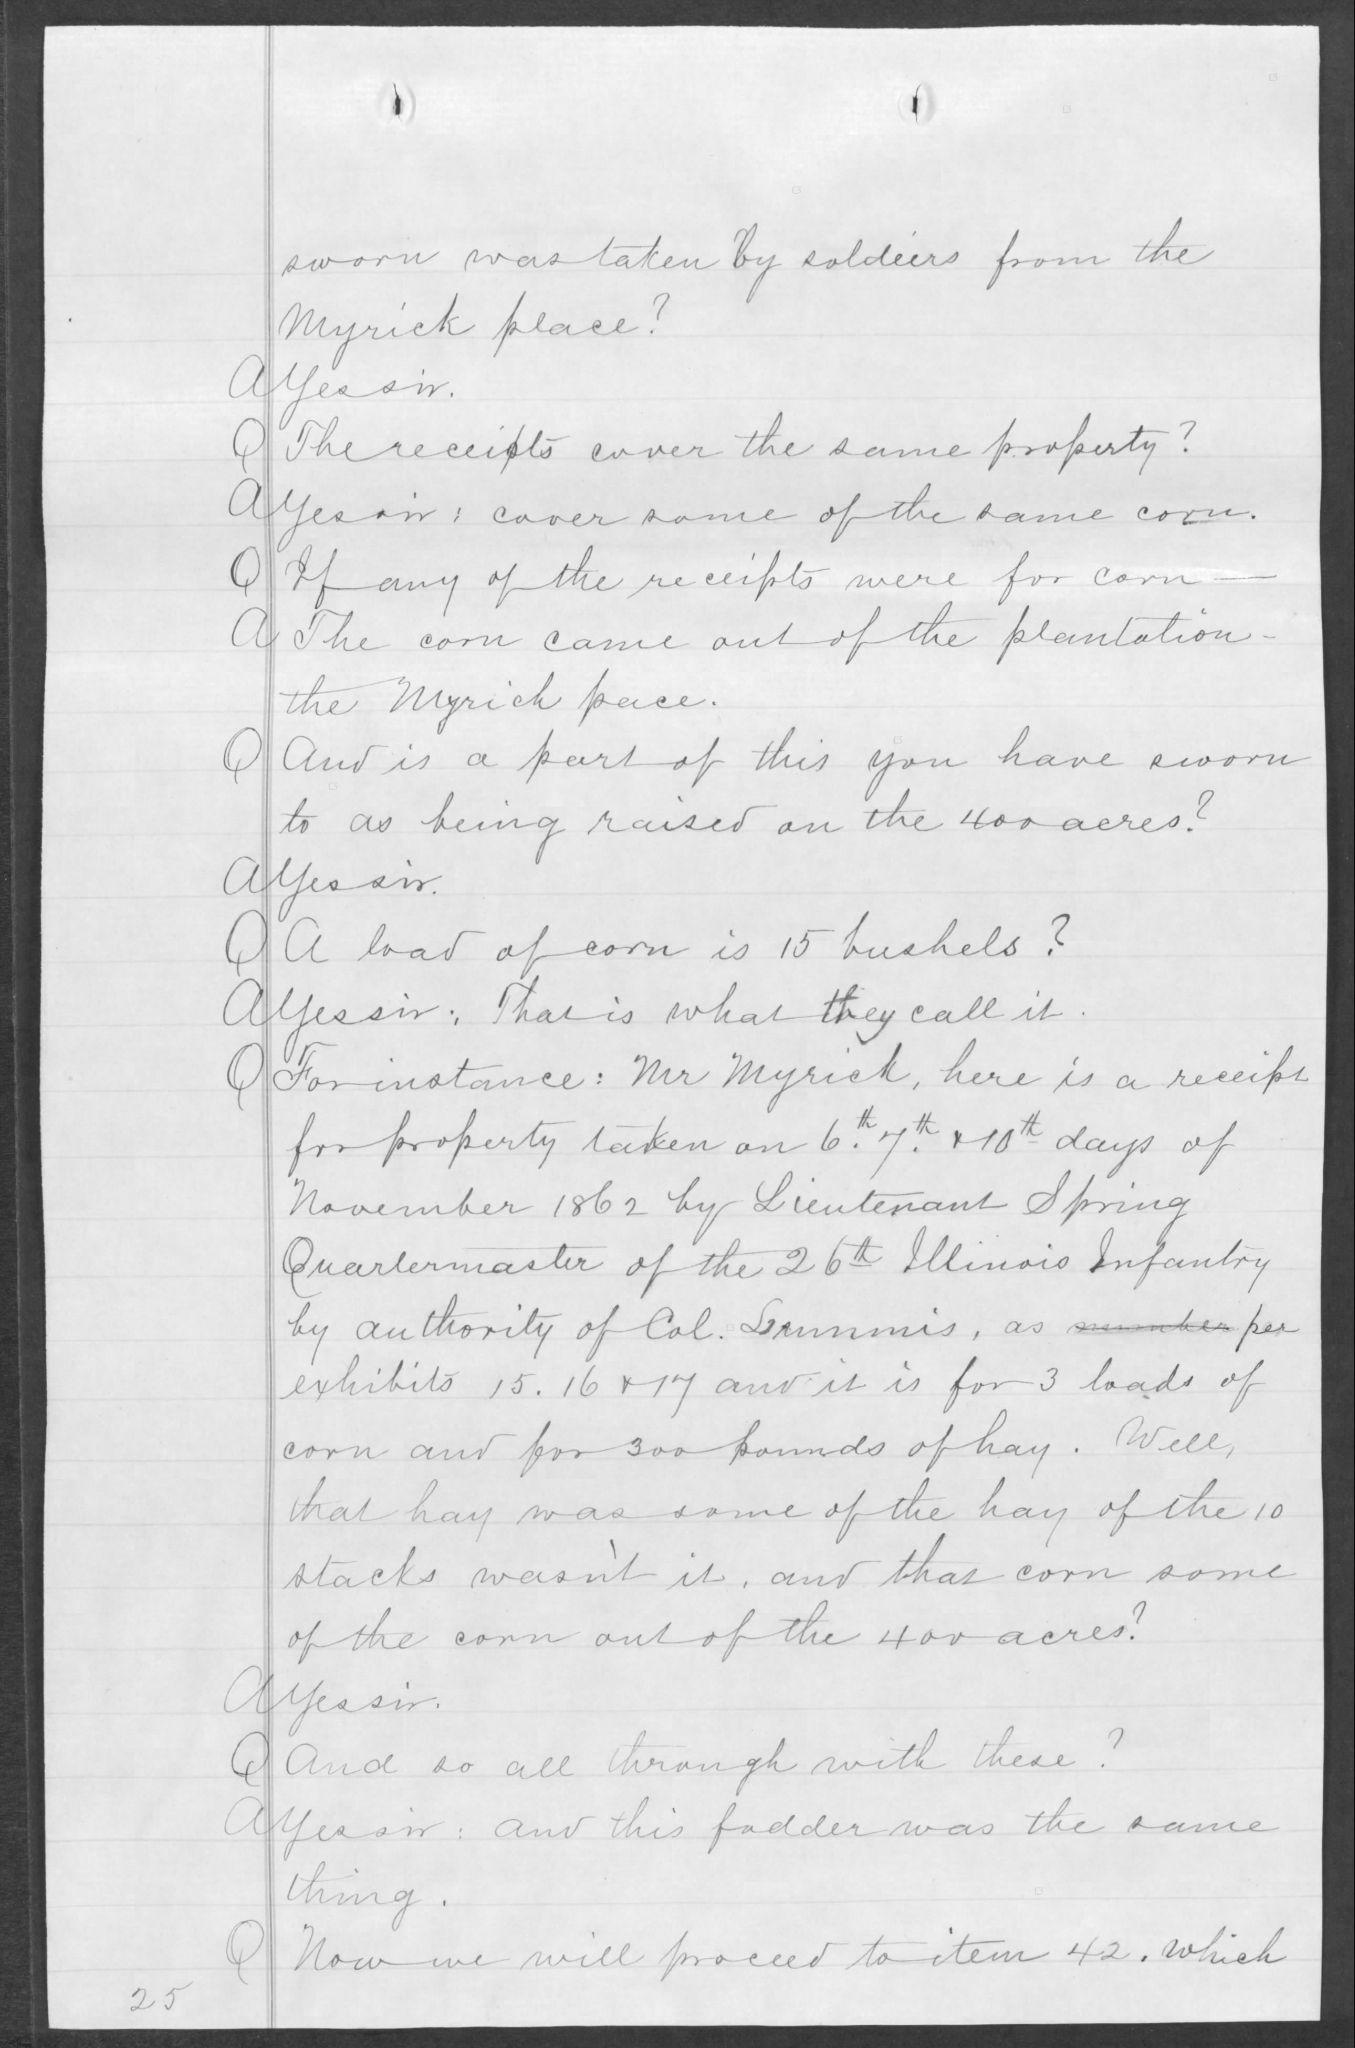 sworn was taken by soldiers from the
Myrick place?
A Yes sir.
Q The receipts cover the same property?
A Yes sir: cover some of the same corn.
Q If any of the receipts were for corn —
A The corn came out of the plantation -
the Myrick pace.
Q And is a part of this you have sworn
to as being raised on the 400 acres?
A Yes sir.
Q A load of corn is 15 bushels?
A Yes sir; That is what they call it.
Q For instance: Mr Myrick, here is a receipt
for property taken on 6th. 7th. & 10th days of
November 1862 by Lieutenant Spring
Quartermaster of the 26th Illinois Infantry
by authority of Col. as number per
exhibits 15. 16 & 17 and it is for 3 loads of
corn and for 300 pounds of hay. Well,
that hay was some of the hay of the 10
stacks wasn't it, and that corn some
of the corn out of the 400 acres?
A Yes sir.
Q And so all through with these?
A Yes sir: and this fodder was the same
thing.
Q Now we will proceed to item 42. which
25